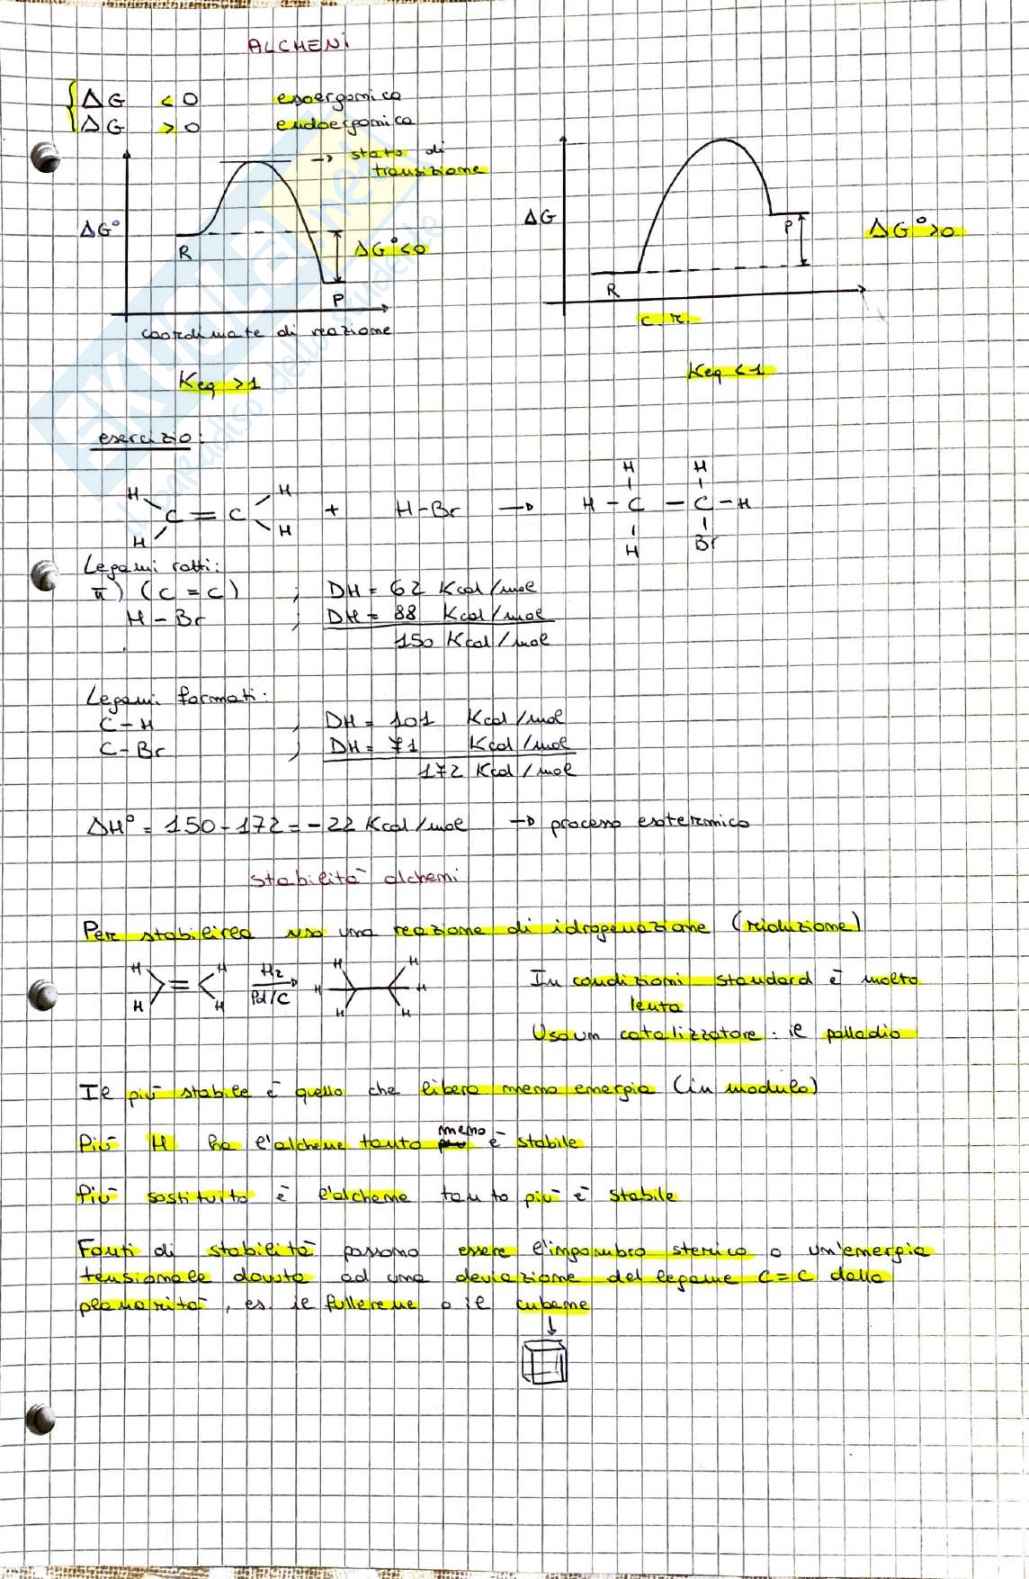 ALCHENI
ΔG < 0 esoergonico
ΔG > 0 endoergonico
→ stato di
transizione
ΔG°
R
ΔG°<0
P
coordinate di reazione
Keq >1
ΔG
R
P
ΔG°>0
c. r.
Keq <1
esercizio:
H H
C = C + H-Br → H - C - C - H
H H
H H
H Br
Legami rotti:
π) (C = C) ; DH = 62 Kcal/mol
H - Br ; DH = 88 Kcal/mol
150 Kcal/mol
Legami formati:
C - H ; DH = 101 Kcal/mol
C - Br ; DH = 71 Kcal/mol
172 Kcal/mol
ΔH° = 150 - 172 = -22 Kcal/mol → processo esotermico
stabilità alcheni
Per stabilirla uso una reazione di idrogenazione (riduzione)
H H H2 H H
H H Pd/C H H H H
In condizioni standard è molto
lenta
Uso un catalizzatore: il palladio
Il più stabile è quello che libera meno energia (in modulo)
Più H ha l'alchene tanto meno è stabile
Più sostituito è l'alchene tanto più è stabile
Fonti di stabilità possono essere l'ingombro sterico o un'energia
tensionale dovuta ad una deviazione del legame C=C dalla
planarità, es. il fullerene o il cubene